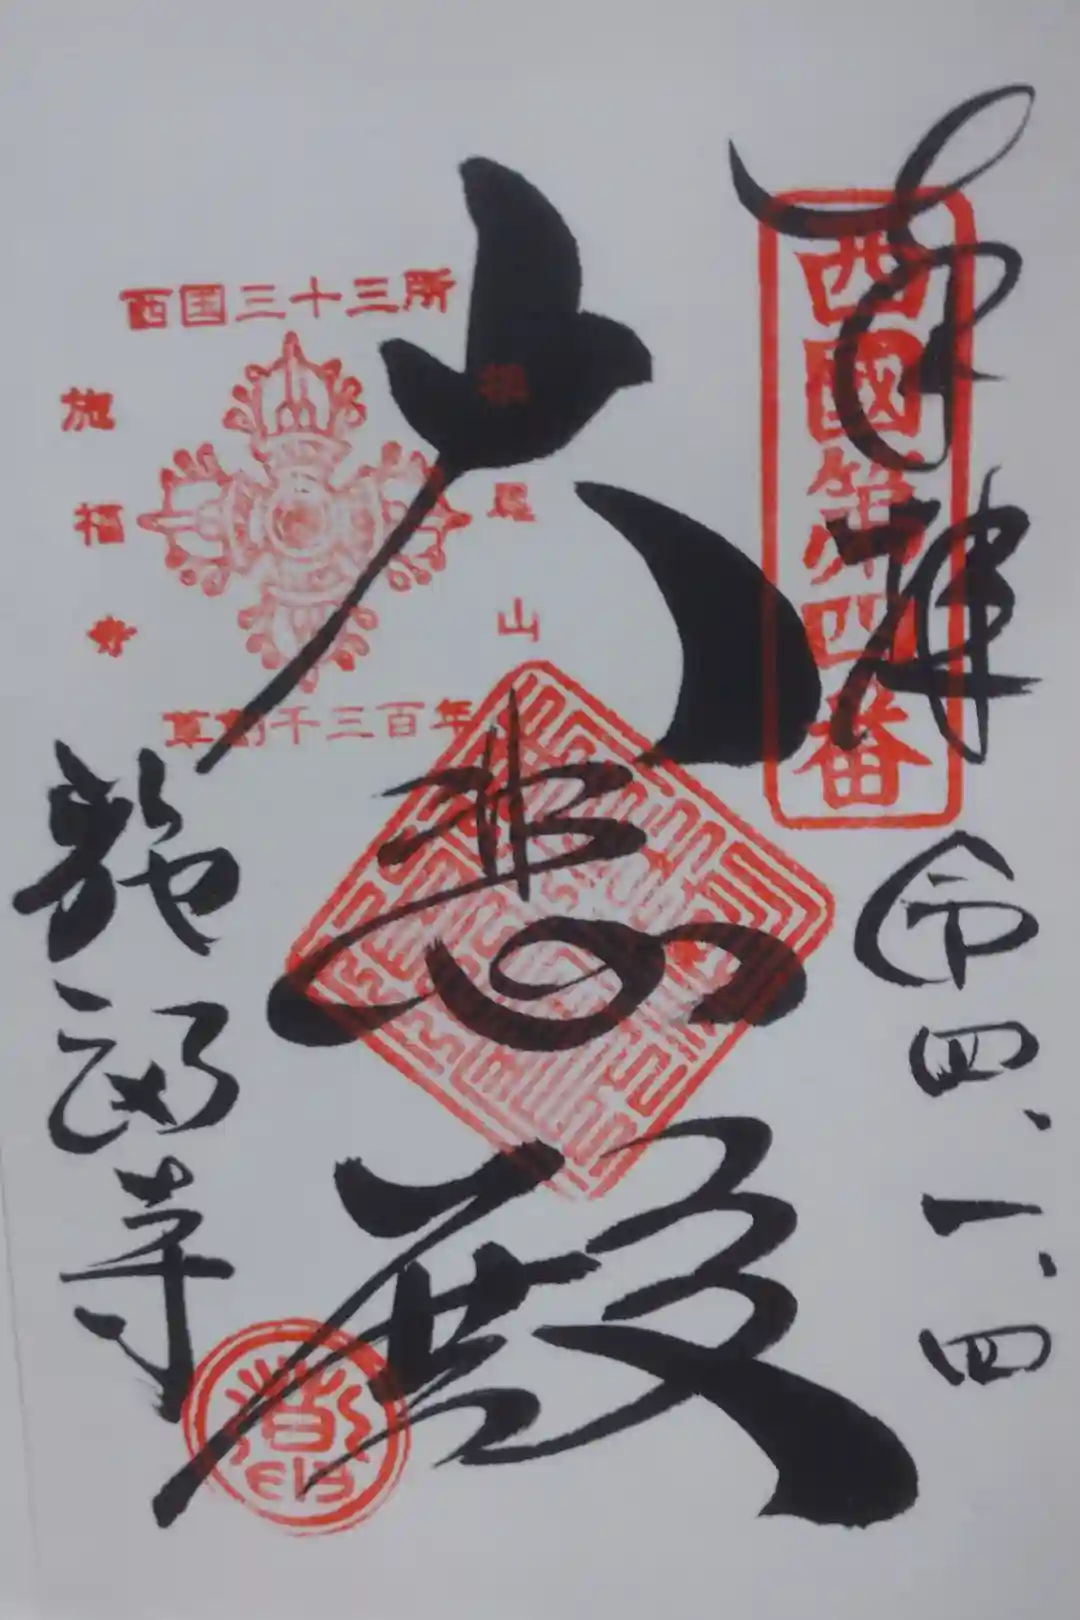 奉拝
令四、一、四
西國第四番
大悲殿
西国三十三所
槙尾山
施福寺
草創千三百年
施福寺